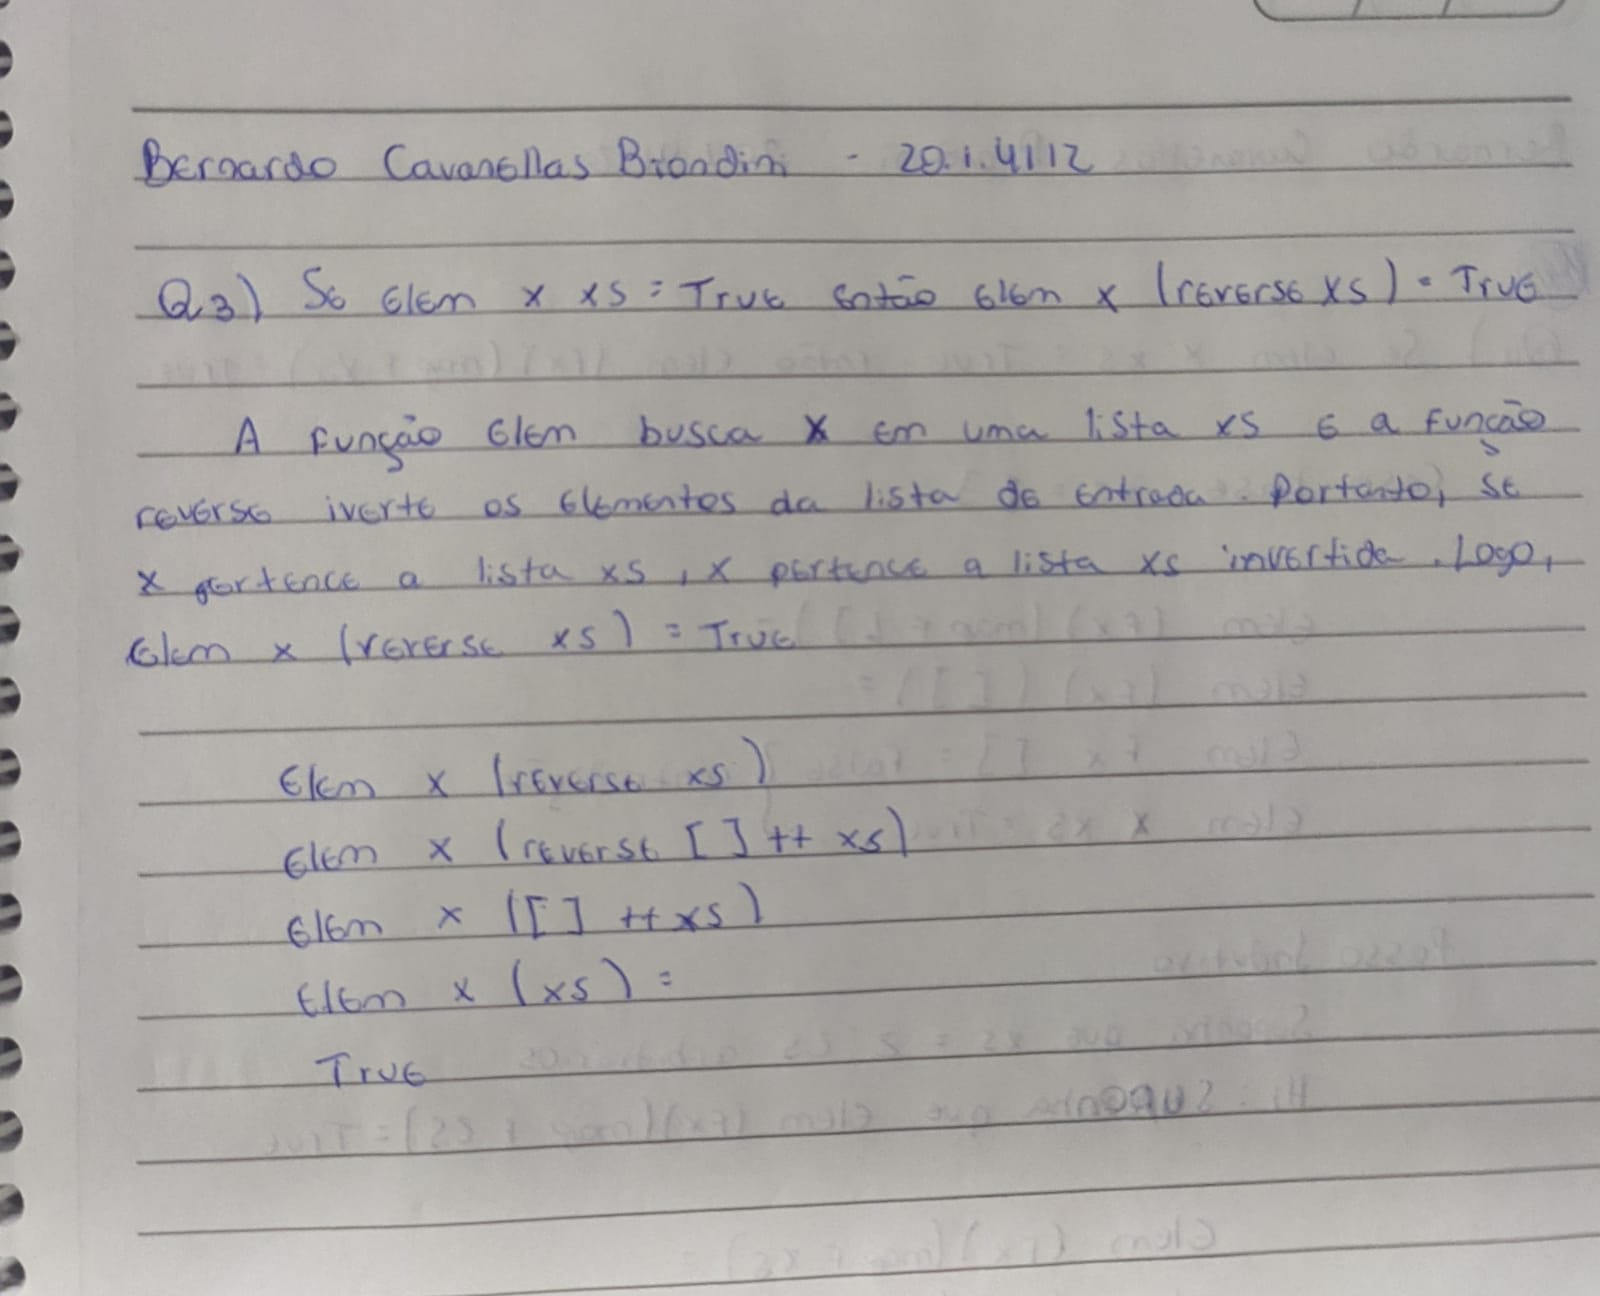 Bernardo Cavanellas Biondini - 20.1.4112
Q3) Se elem x xs = True então elem x (reverse xs) = True
A função elem busca x em uma lista xs e a função
reverse iverte os elementos da lista de entrada. Portanto, se
x pertence a lista xs, x pertence a lista xs invertida. Logo,
elem x (reverse xs) = True
elem x (reverse xs)
elem x (reverse [] ++ xs)
elem x ([] ++ xs)
elem x (xs) =
True